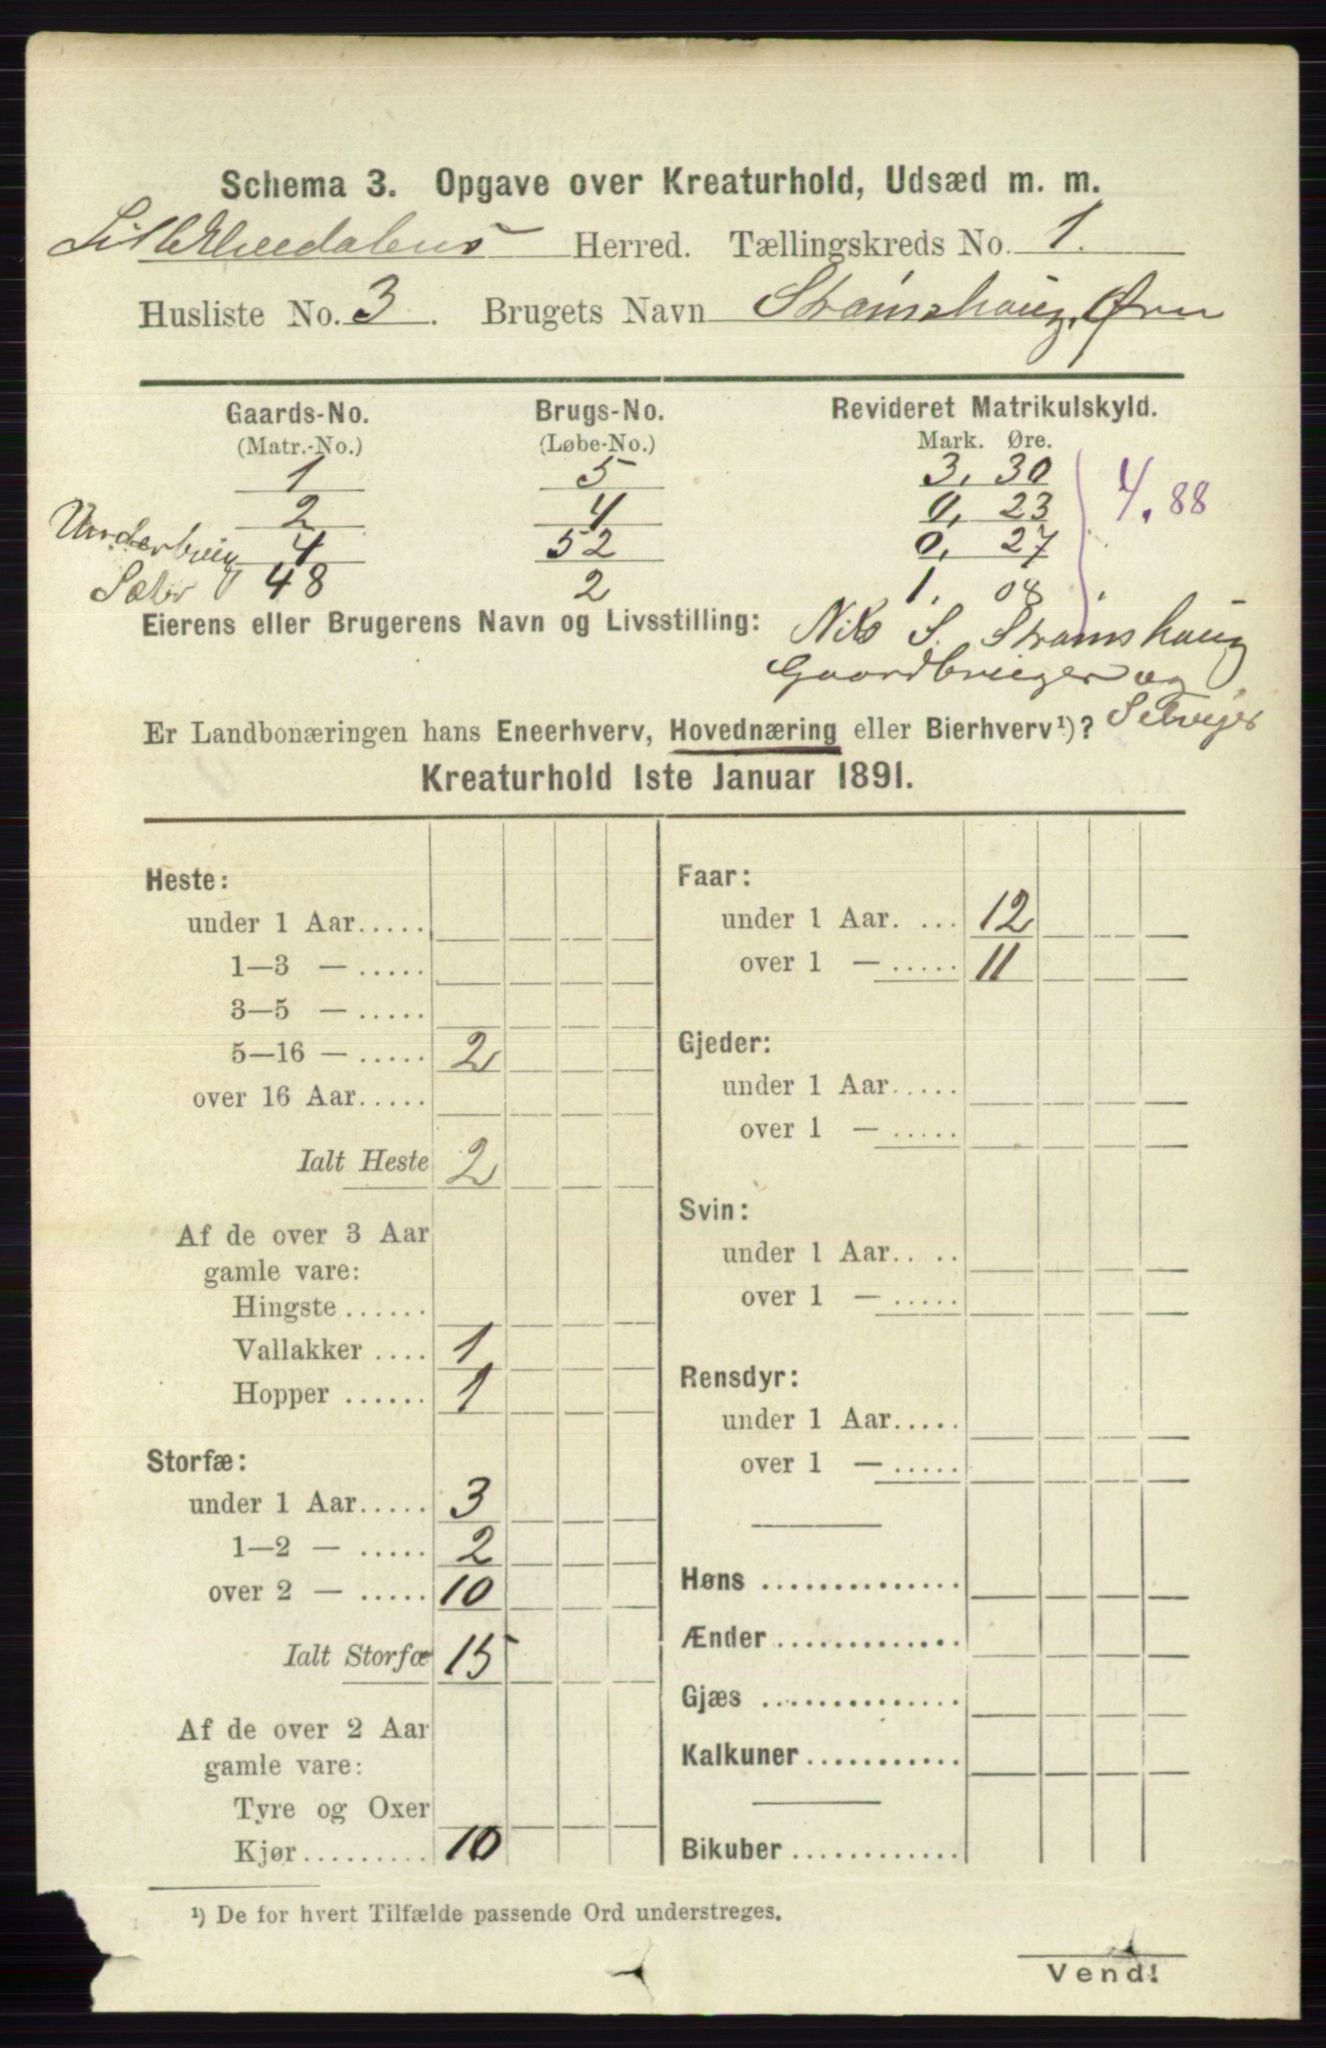 Schema 3. Opgave over Kreaturhold, Udsæd m. m.
LilleElvedalens Herred. Tællingskreds No. 1.
Husliste No. 3. Brugets Navn Strømshaug, Øvre
Gaards-No. Brugs-No. Revideret Matrikulskyld.
(Matr.-No.) (Løbe-No.) Mark. Øre.
1 5 3, 30
2 4 0, 23 4.88
Underbrug 4 52 0, 27
Sæter 48 2 1, 08
Eierens eller Brugerens Navn og Livsstilling: Nils S. Strømshaug
Gaardbruger og
Selvejer
Er Landbonæringen hans Eneerhverv, Hovednæring eller Bierhverv¹)?
Kreaturhold 1ste Januar 1891.
Heste:
under 1 Aar.....
1—3 — .....
3—5 — .....
5—16 — ..... 2
over 16 Aar.....
Ialt Heste 2
Af de over 3 Aar
gamle vare:
Hingste ......
Vallakker .... 1
Hopper ...... 1
Storfæ:
under 1 Aar..... 3
1—2 — ..... 2
over 2 — ..... 10
Ialt Storfæ 15
Af de over 2 Aar
gamle vare:
Tyre og Oxer
Kjør......... 10
Faar:
under 1 Aar. ... 12
over 1 — ..... 11
Gjeder:
under 1 Aar.....
over 1 — .....
Svin:
under 1 Aar.. ..
over 1 — .....
Rensdyr:
under 1 Aar.....
over 1 — .....
Høns ..............
Ænder .............
Gjæs ..............
Kalkuner ...........
Bikuber ............
¹) De for hvert Tilfælde passende Ord understreges.
Vend!